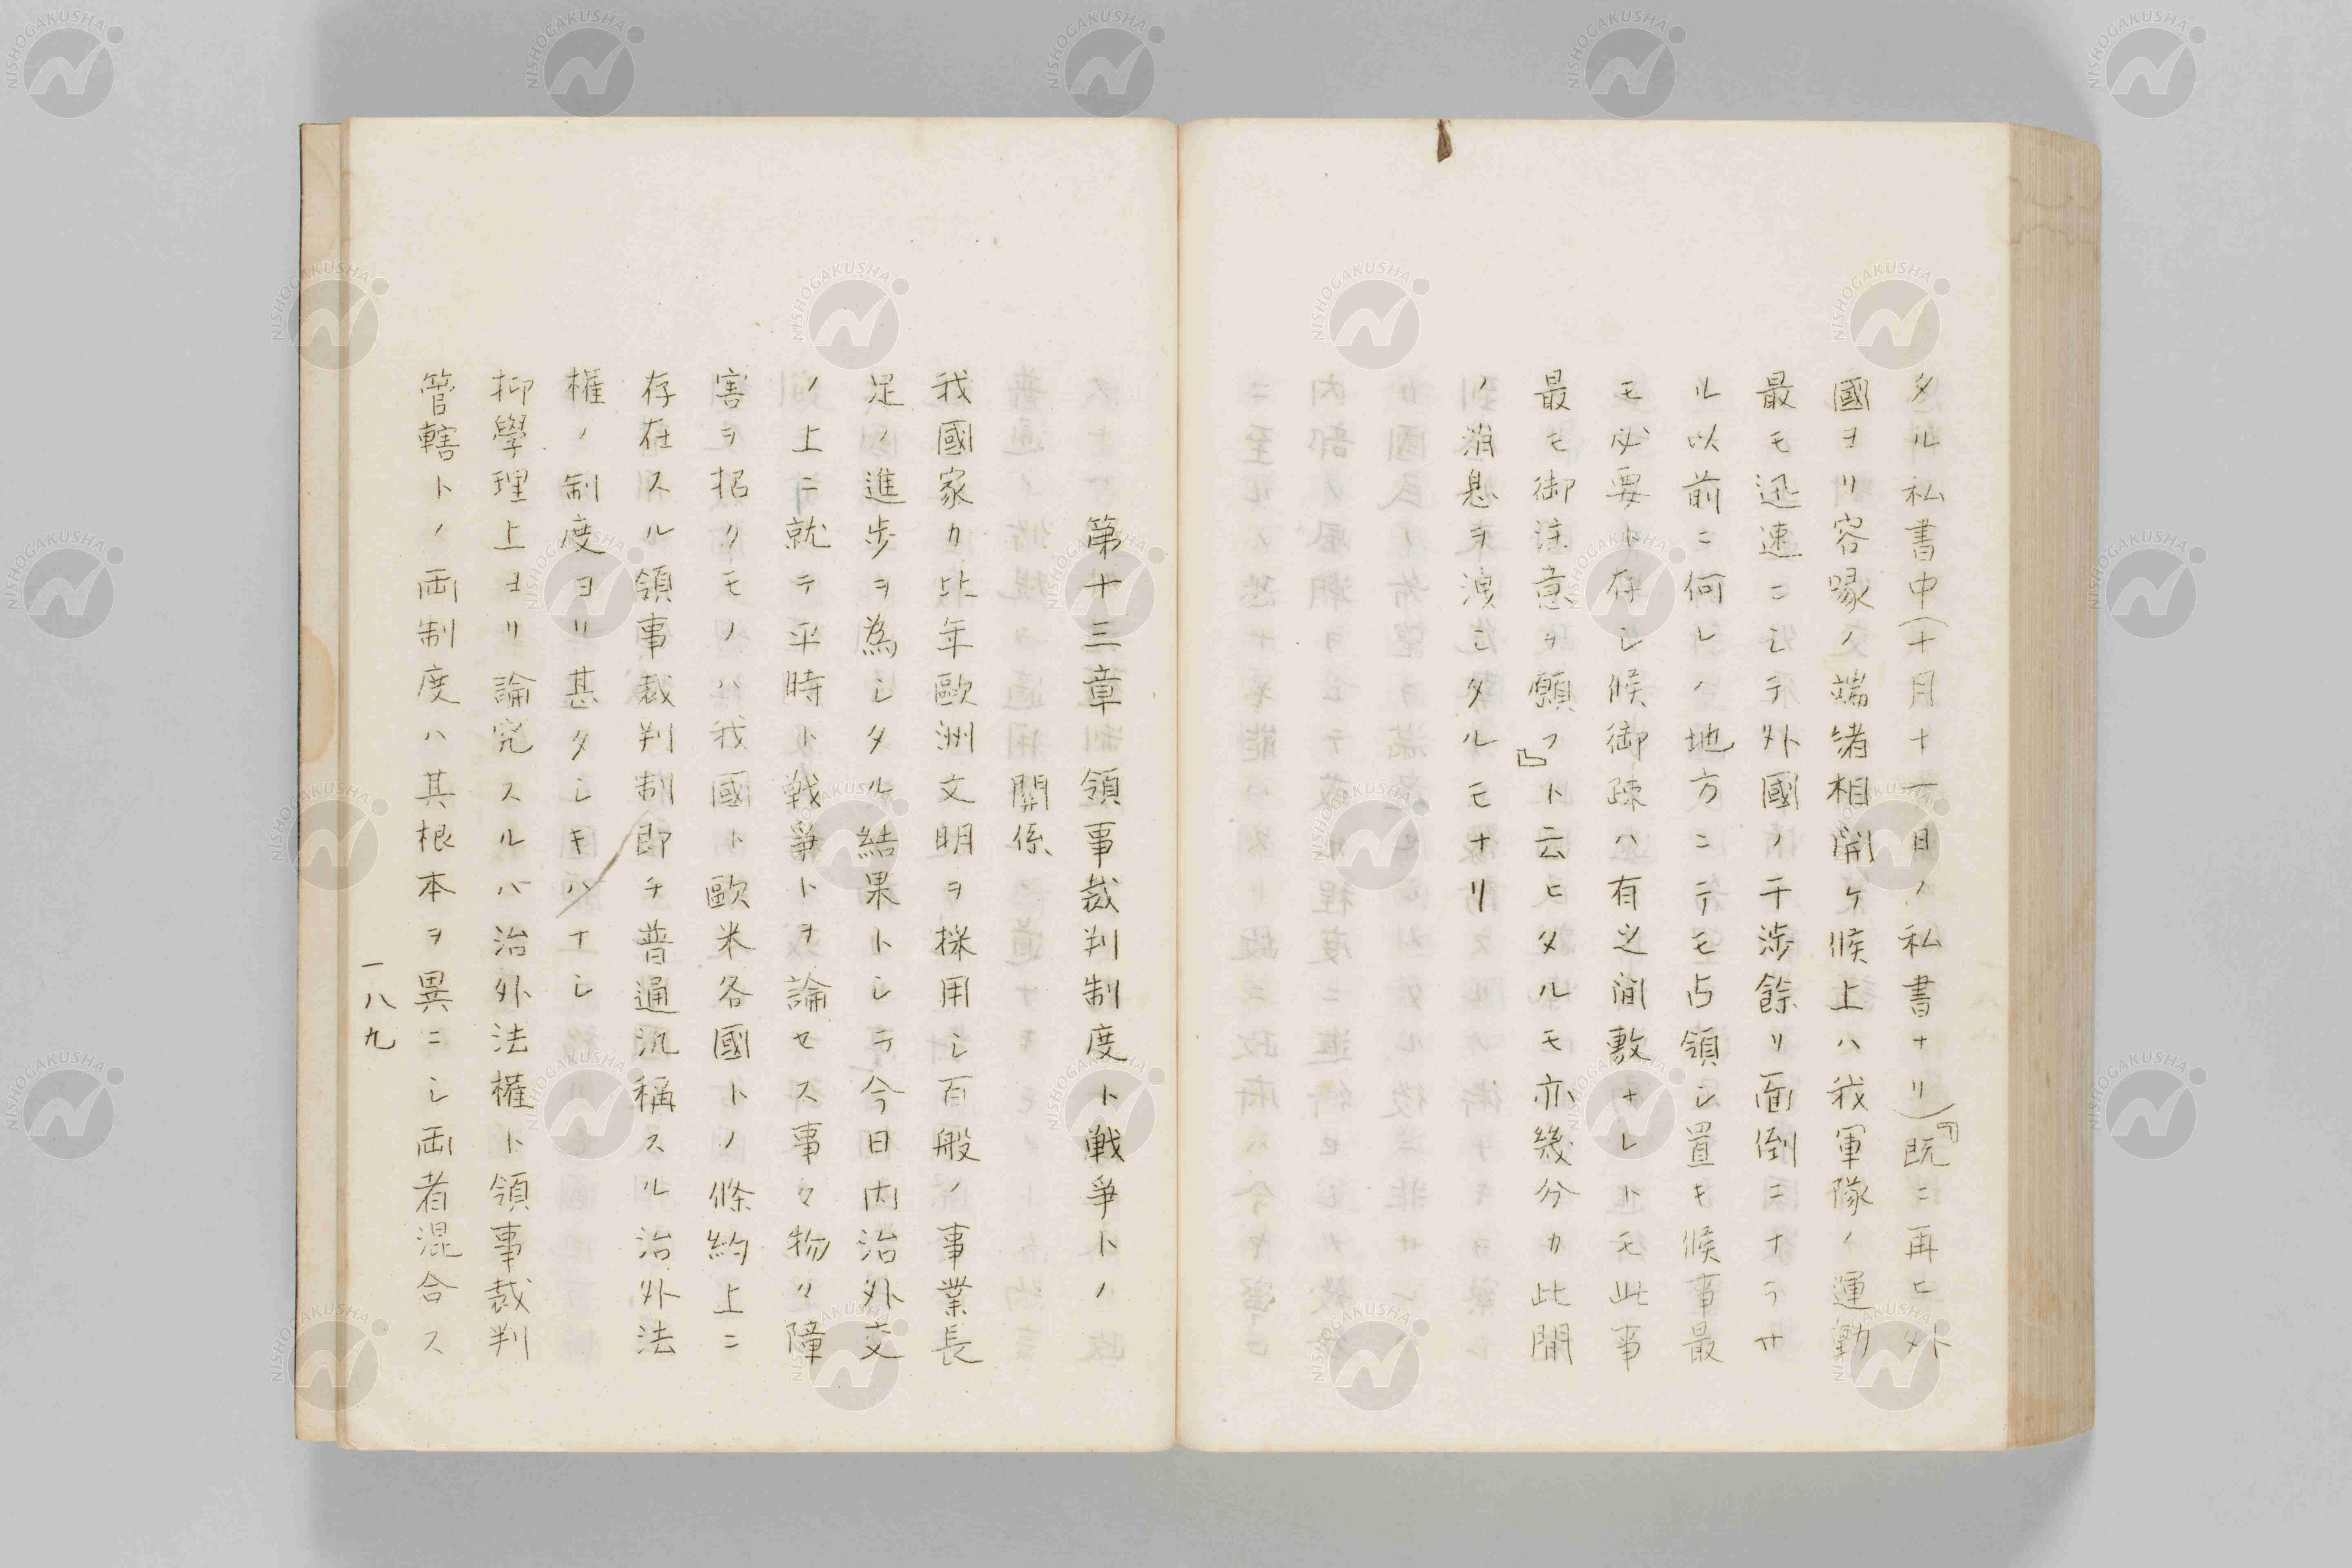 タル私書中(十月十一日ノ私書ナリ)『既ニ再ヒ外
國ヨリ容喙ノ端緒相開ケ候上ハ我軍隊ノ運動
最モ迅速ニシテ外國ノ干渉餘リ面倒ニナラサ
ル以前ニ何レノ地方ニテモ占領シ置キ候事最
モ必要ト存シ候御疎ハ有之間敷ナレトモ此事
最モ御注意ヲ願フ』ト云ヒタルモ亦幾分カ此間
ノ消息ヲ洩シタルモナリ
第十三章 領事裁判制度ト戦爭トノ
關係
我國家カ比年歐洲文明ヲ採用シ百般ノ事業長
足ノ進歩ヲ為シタル結果トシテ今日内治外交
ノ上ニ就テ平時ト戦爭トヲ論セス事々物々障
害ヲ招クモノハ我國ト歐米各國トノ條約上ニ
存在スル領事裁判制即チ普通汎稱スル治外法
權ノ制度ヨリ甚タシキハナシ
抑學理上ヨリ論究スルハ治外法權ト領事裁判
管轄トノ両制度ハ其根本ヲ異ニシ両者混合ス
一八九
NISHOGAKUSHA